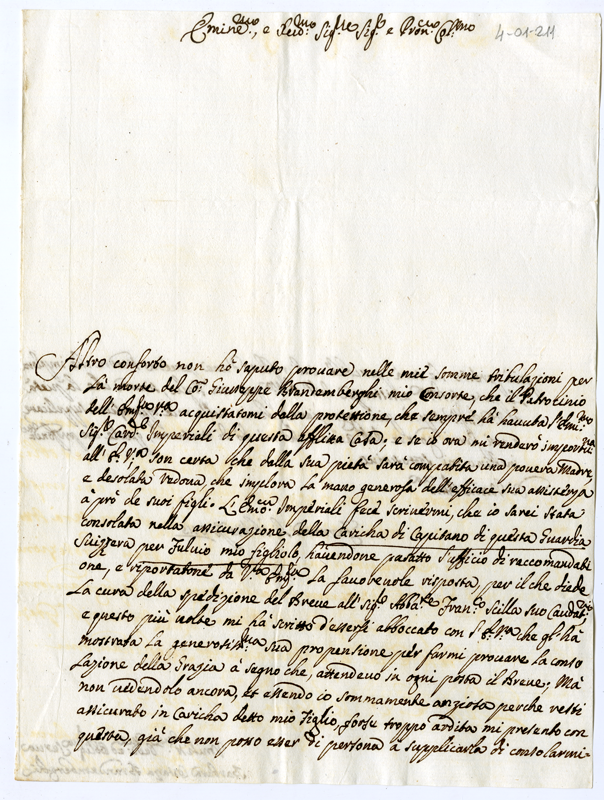 Emin.mo, e Reud.mo Sig.re Sig.r e Pron.e Col.mo
4-01-211
Altro conforto non hò saputo prouare nelle mie somme tribulazioni per
La morte del Co: Giuseppe Brandemberghi mio Consorte, che il Patrocinio
dell' Em.za V.ra acquistatomi della protettione, che sempre hà hauuta l'Em.mo
Sig.r Card.le Imperiali di questa afflitta Casa; e se io ora mi renderò importuna
all' E. V.ra son certa che dalla sua pietà sarà compatita una pouera Madre,
e desolata Vedoua che implora la mano generosa dell' efficace sua assistenza
à prò de suoi figli. L'Em.o Imperiali fece scriuermi, che io sarei stata
consolata nella assicurazione della Caricha di Capitano di questa Guardia
Suizzera per Fuluio mio figliolo, hauendone passato l'ufficio di raccomandati
one, e riportatone da V.ra Em.za La fauoreuole risposta, per il che diede
La cura della spedizione del Breue all' Sig.r Abbate Fran.co Scilla suo Caudat.rio
e questo più uolte mi hà scritto d'essersi abboccato con S. E. V.ra che gl'hà
mostrata La generosità sua propensione per farmi prouare La conso
Lazione della Grazia à segno che, attendeuo in ogni posta il Breue; Mà
non uedendolo ancora, et essendo io sommamente anziosa perche resti
assicurato in Caricha detto mio Figlio, forse troppo ardita mi presento con
questa, già che non posso esser di persona à supplicarla di consolarmi